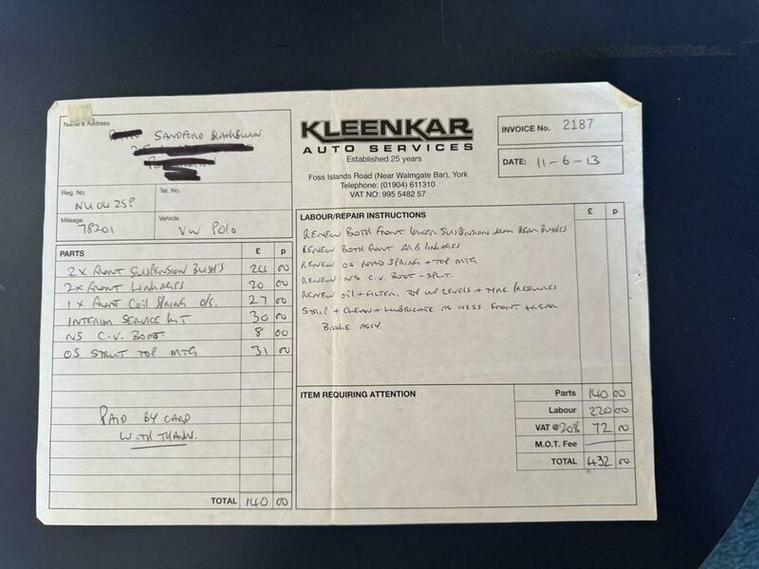 Name & Address
SANDFORD BLACKBURN
KLEENKAR
AUTO SERVICES
Established 25 years
Foss Islands Road (Near Walmgate Bar), York
Telephone: (01904) 611310
VAT NO: 995 5482 57
INVOICE No. 2187
DATE: 11-6-13
Reg. No.
NU04 ZSP
Tel. No.
Mileage
78201
Vehicle
VW POLO
PARTS £ p
2 x FRONT SUSPENSION BUSH'S 24 00
2 x FRONT LINKAGES 20 00
1 x FRONT COIL SPRING O/S. 27 00
INTERIM SERVICE KIT 30 00
NS C.V. BOOT 8 00
OS STRUT TOP MTG 31 00
PAID BY CARD
WITH THANKS.
TOTAL 140 00
LABOUR/REPAIR INSTRUCTIONS £ p
RENEW BOTH FRONT LOWER SUSPENSION ARM REAR BUSHES
RENEW BOTH FRONT ARB LINKAGES
RENEW OS ROAD SPRING + TOP MTG
RENEW NS C.V. BOOT - SPLIT.
RENEW OIL + FILTER, TOP UP LEVELS + TYRE PRESSURES
STRIP + CLEAN + LUBRICATE AS NESS FRONT + REAR
BRAKE ASSY.
ITEM REQUIRING ATTENTION
Parts 140 00
Labour 220 00
VAT @ 20% 72 00
M.O.T. Fee
TOTAL 432 00